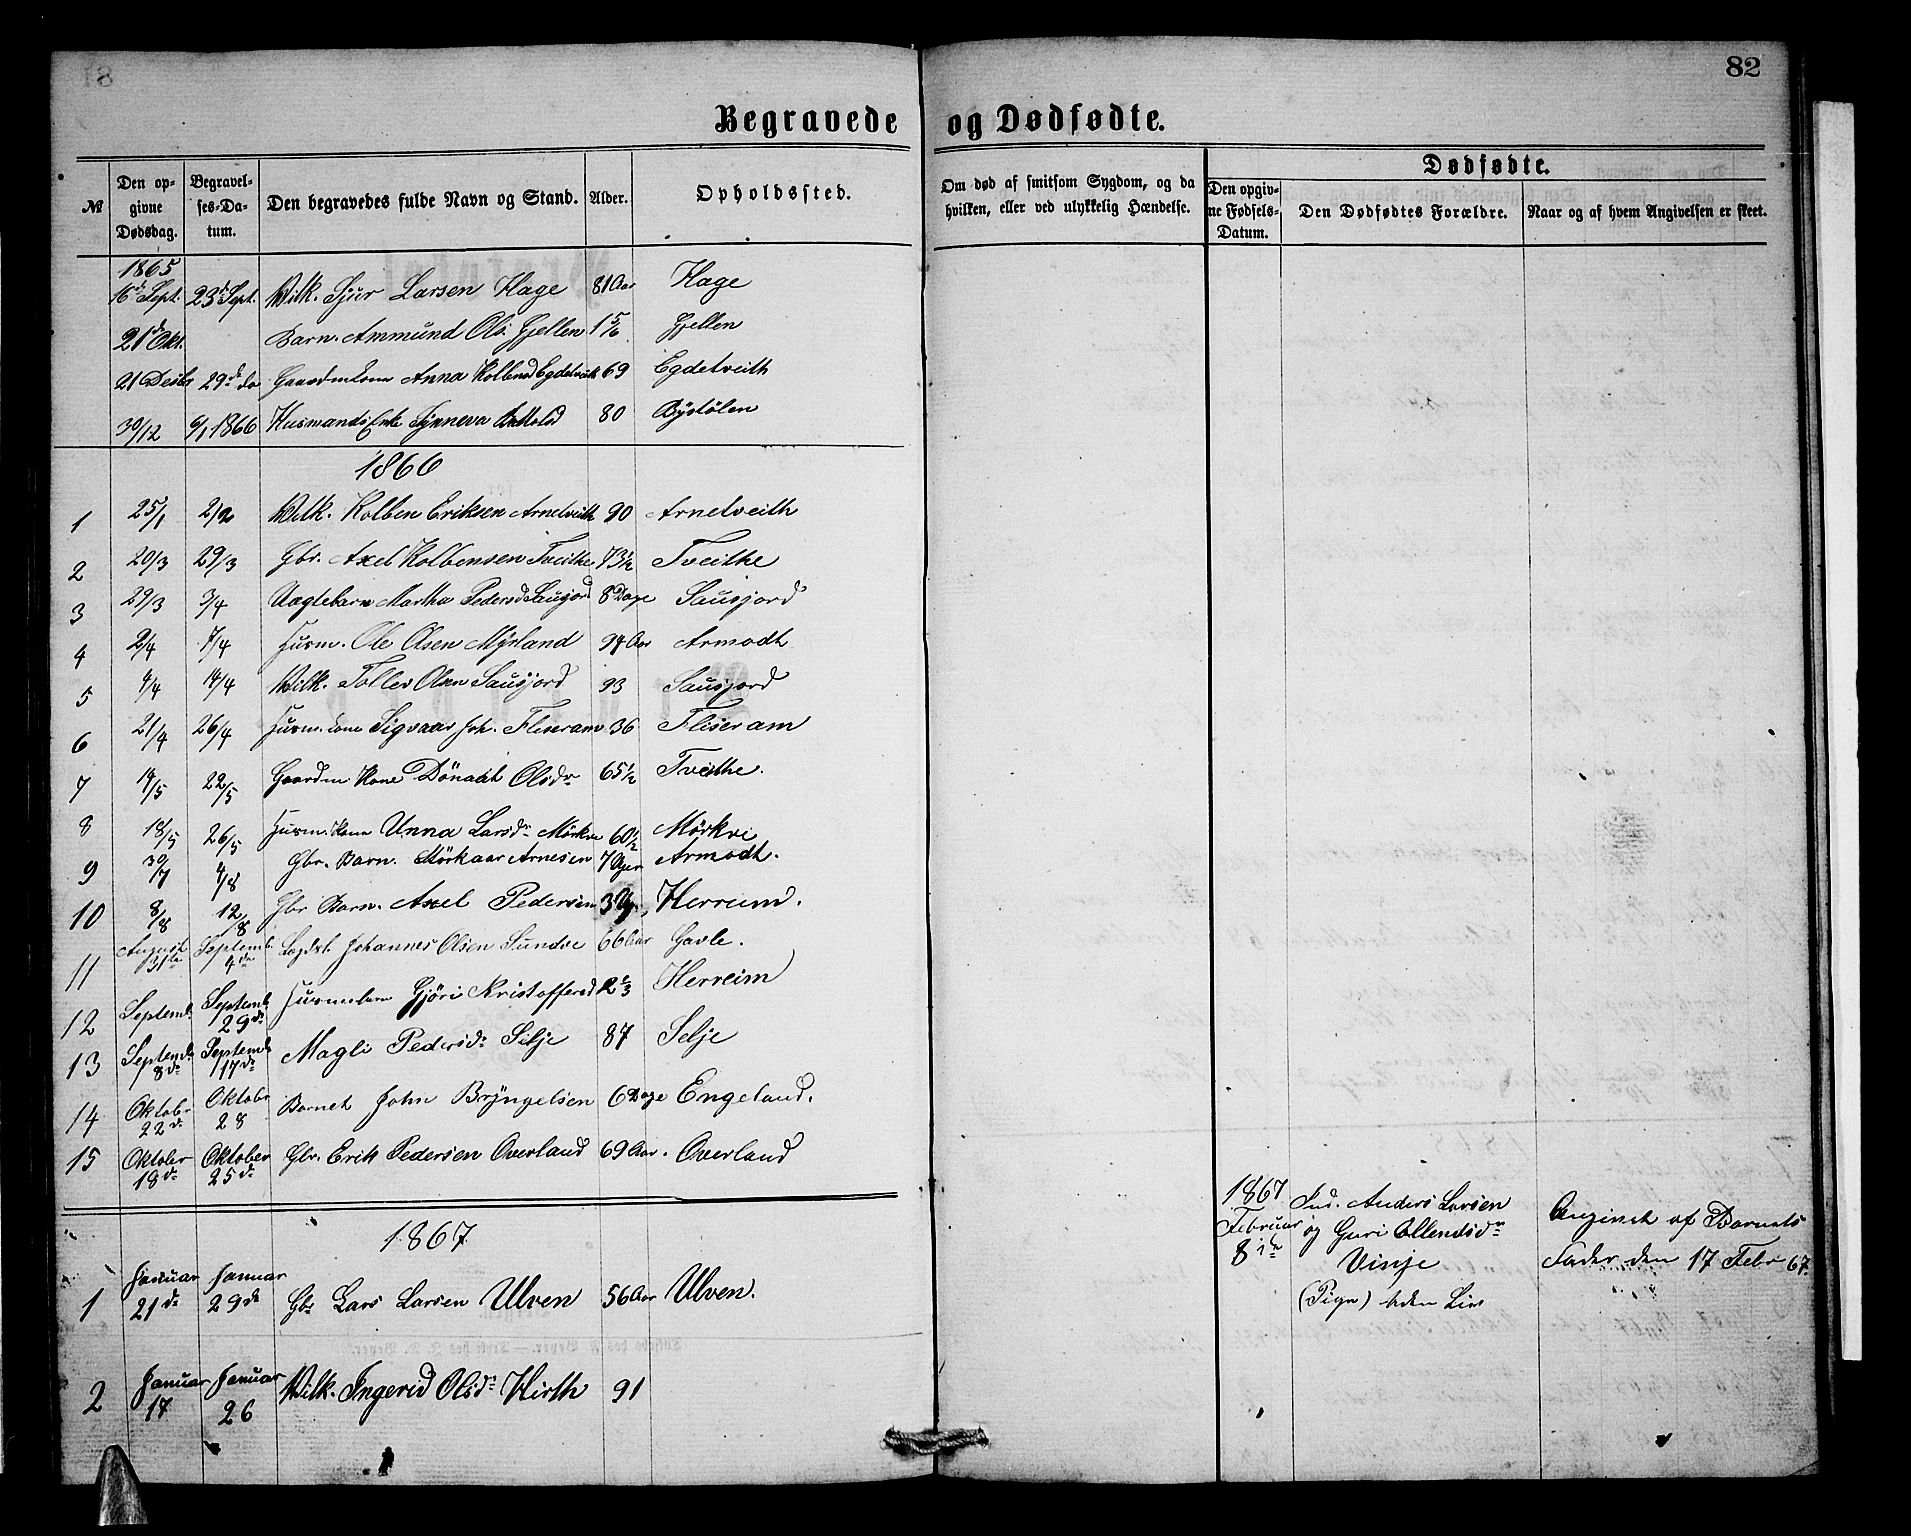 82
Begravede og Dødfødte.
№ Den opgivne Dødsdag. Begravelses-Datum. Den begravedes fulde Navn og Stand. Alder. Opholdssted. Om død af smitsom Sygdom, og da hvilken, eller ved ulykkelig Hændelse. Dødfødte. Den opgivne Fødsels-Datum. Den Dødfødtes Forældre. Naar og af hvem Angivelsen er skeet.
1865
16 Sept. 23 Sept. Vilk. Sjur Larsen Hage 81 Aar Hage
21 Okt. Barn. Ammund Ols. Gjellen 1 5/6 Gjellen
21 Desbr 29 do Gaardmkone Anna Kolbensd Egdetveith 69 Egdetveith
30/12 6/1 1866 Husmands Enke Synneva 80 Bystölen
1866
1 25/1 2/2 Vilk. Kolben Eriksen Arnetveith 90 Arnetveith
2 20/3 29/3 Gbr. Axel Kolbensen Tveithe 73½ Tveithe
3 29/3 3/4 Uægtebarn Martha Pedersd Sausjord 8 Dage Sausjord
4 2/4 7/4 Husm. Ole Olsen Myrland 94 Aar Armodt
5 4/4 14/4 Vilk. Tollev Olsen Sausjord 93 Sausjord
6 21/4 26/4 Husm. kone Sigvaar Joh. Fliseram 36 Fliseram
7 14/5 22/5 Gaardm Kone Dönadt Olsdr 65½ Tveithe.
8 18/5 26/5 Husm. Kone Unna Larsdr Mörkve 60½ Mörkvi
9 30/7 4/8 Gbr. Barn. Mörkaar Arnesen 7 Uger Armodt.
10 8/8 12/8 Gbr Barn. Axel Pedersen 3 Ug. Herreim.
11 August 31te Septemb. 4de Lægdsl. Johannes Olsen Sundve 66 Aar Gavle.
12 Septemb. Septemb. 29de Husmbarn Gjöri Kristoffersd 2 2/3 Herreim
13 Septemb 8de Septemb 17de Magli Pedersdr Silje 87 Selje
14 Oktobr 22de Oktobr 28 Barnet John Bryngelsen 6 Dage Engeland.
15 Oktober 18de Oktober 25de Gbr. Erik Pedersen Overland 69 Aar. Overland
1867
1 Januar 21de Januar 29de Gbr Lars Larsen Ulven 56 Aar Ulven.
2 Januar 17 Januar 26 Vilk. Ingerid Olsdr Hirth 91
1867 Februar 8de
Ind. Anders Larsen
og Guri Ellendsdr
Vinje
(Pige) uden Liv
Anginet af Barnets
Fader den 17 Febr 67.